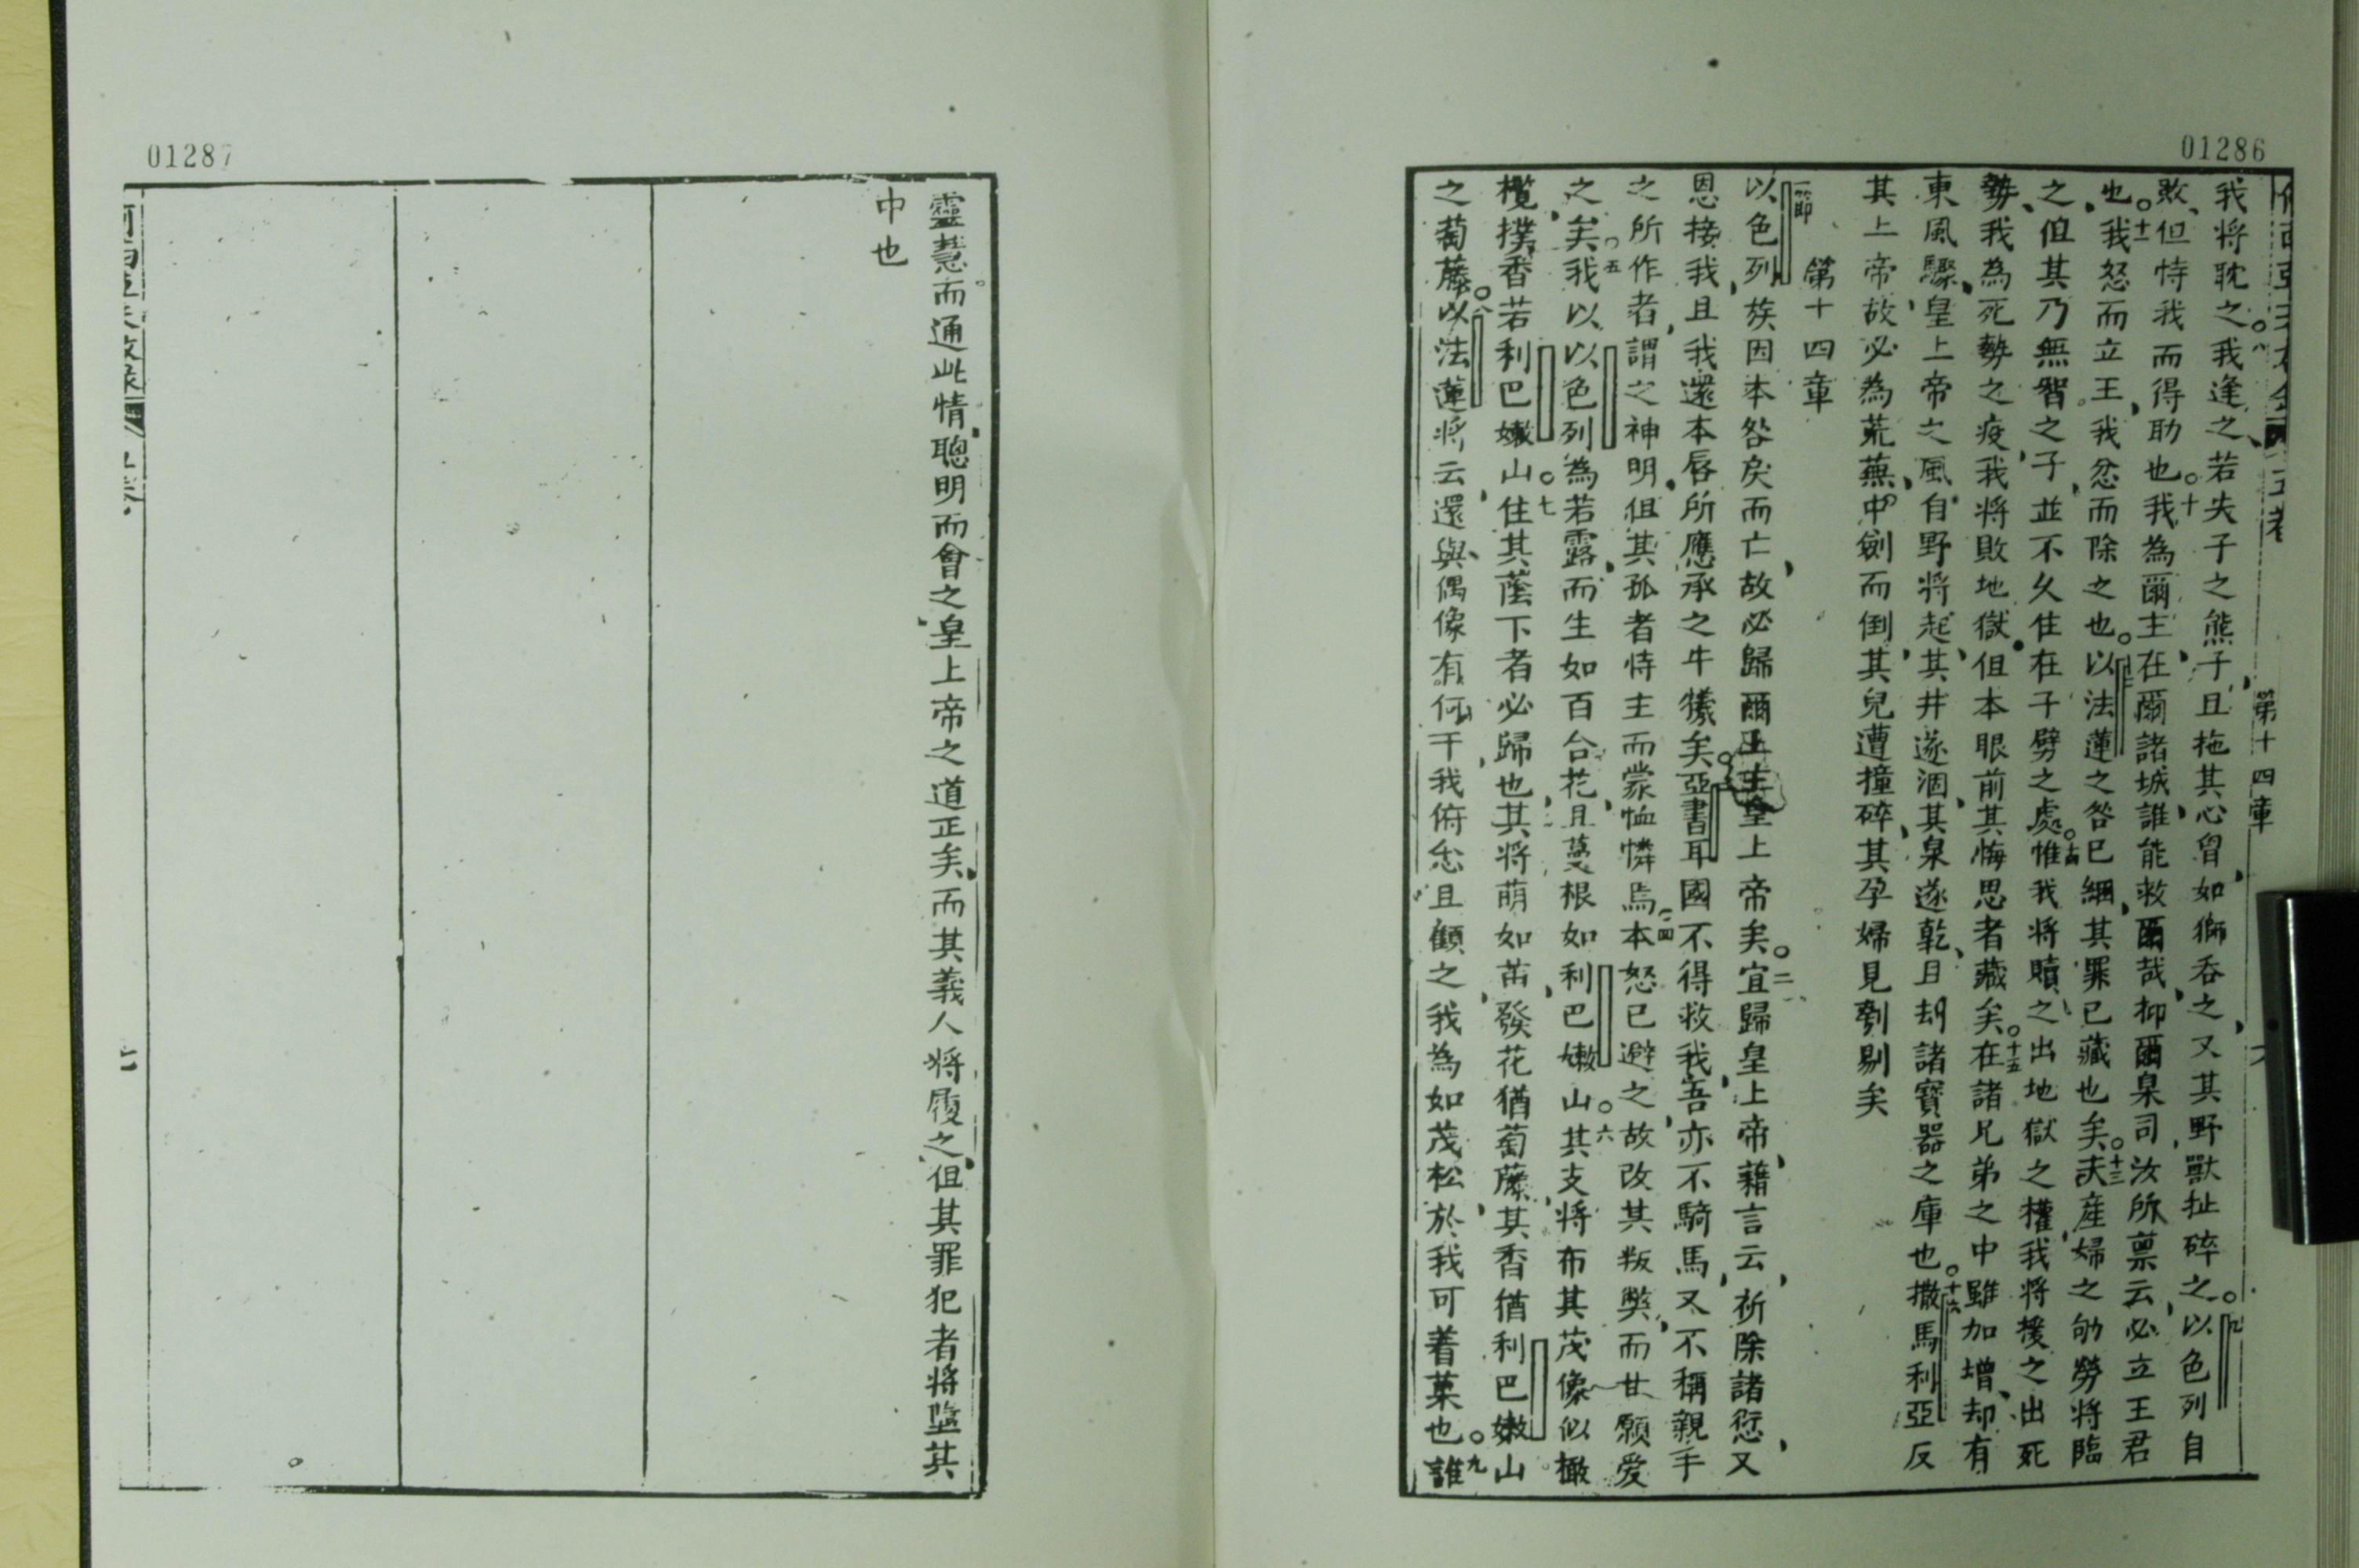 01286
第十四章
我將耽之我逢之若失子之熊子且拖其心曾如獅吞之又其野獸扯碎之以色列自
敗但恃我而得助也我為爾主在爾諸城誰能救爾哉抑爾臬司汝所禀云必立王君
也我怒而立王我忿而除之也以法蓮之咎已綑其罪已藏也矣夫產婦之劬勞將臨
之但其乃無智之子並不久住在子劈之處惟我將贖之出地獄之權我將援之出死
勢我為死勢之疫我將敗地獄但本眼前其悔思者藏矣在諸兄弟之中雖加增却有
東風驟皇上帝之風自野將起其井遂涸其泉遂乾且刼諸寶器之庫也撒馬利亞反
其上帝故必為荒蕪中劍而倒其兒遭撞碎其孕婦見剖剔矣
第十四章
一節
以色列族因本咎戾而亡故必歸爾皇上帝矣宜歸皇上帝藉言云祈除諸愆又
恩接我且我還本唇所應承之牛犢矣亞書耳國不得救我吾亦不騎馬又不稱親手
之所作者謂之神明但其孤者恃主而蒙恤憐焉本怒已避之故改其叛弊而甘願愛
之矣我以以色列為若露而生如百合花且蔓根如利巴嫩山其支將布其茂像似橄
欖撲香若利巴嫩山住其蔭下者必歸也其將萌如苗發花猶萄藤其香猶利巴嫩山
之萄藤以法蓮將云還與偶像有何干我俯念且顧之我為如茂松於我可着菓也誰
01287
靈慧而通此情聰明而會之皇上帝之道正矣而其義人將履之但其罪犯者將墮其
中也